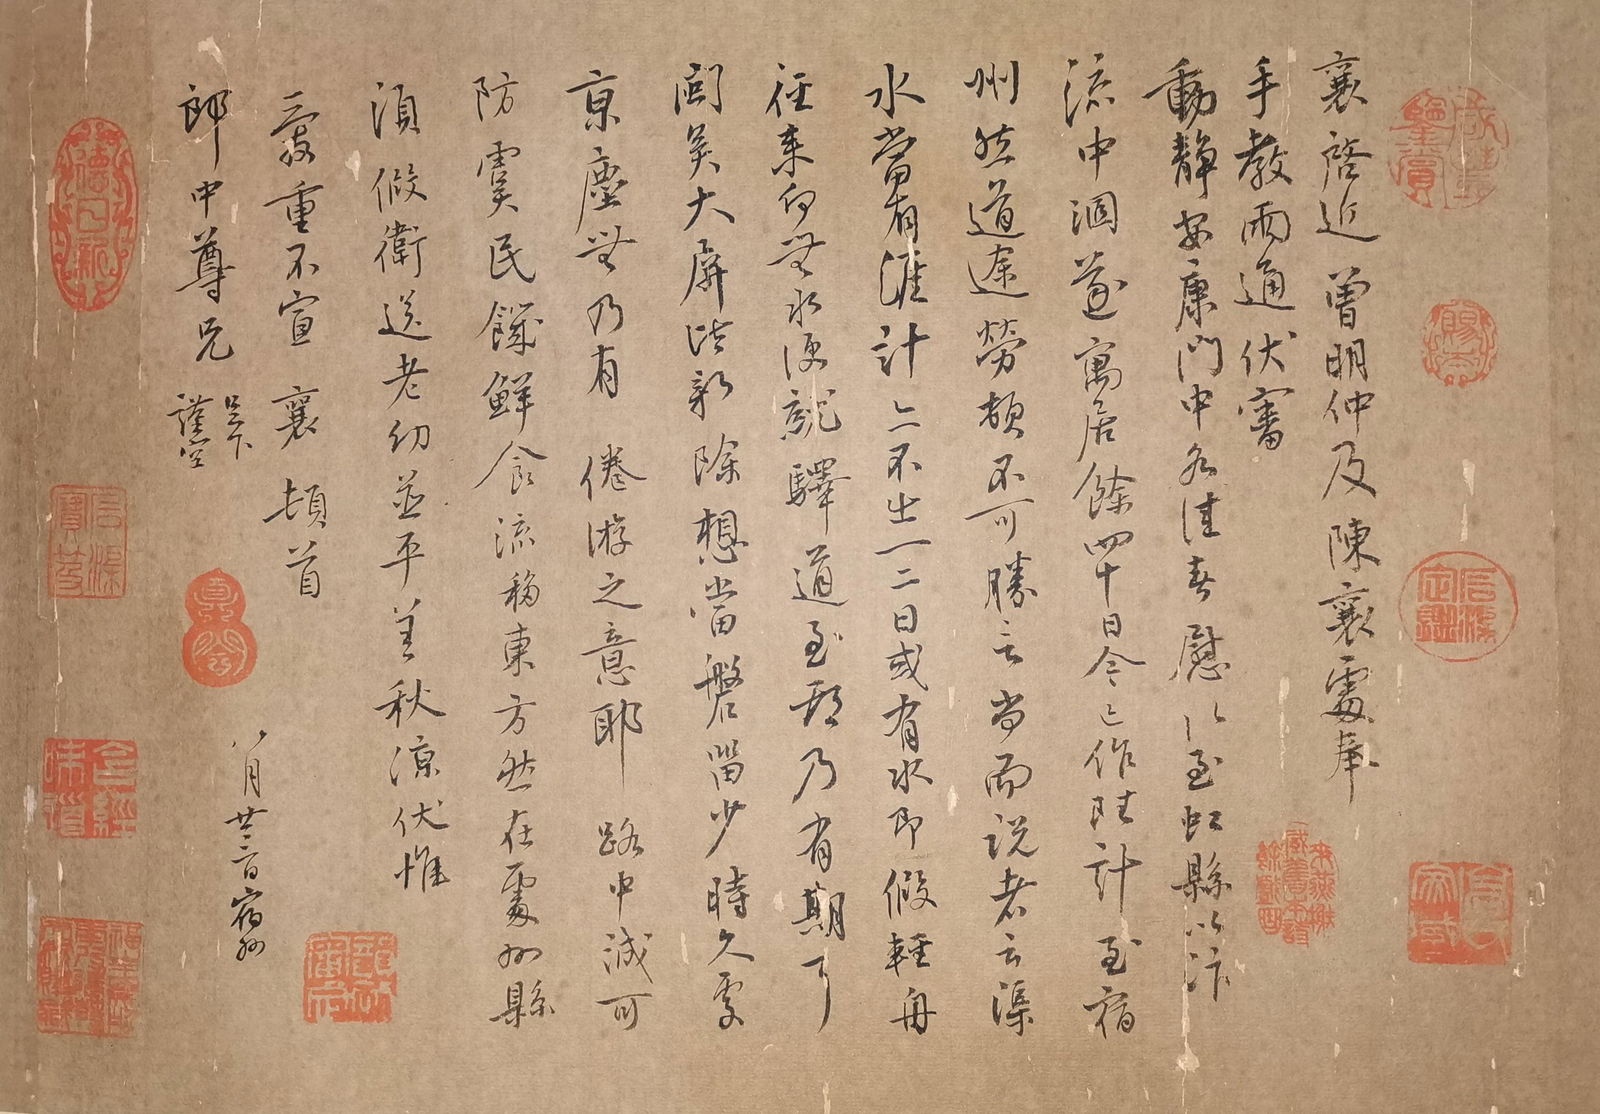 襄啓近曾明仲及陳襄處奉
手教兩通伏審
動靜安康門中各佳喜慰以至虹縣以汴
流中涸遂寓居餘四十日今已作陸計至宿
州然道途勞頓不可勝言尚而説者云渠
水當有涯計亦不出一二日或有水即假輕舟
徑來向無水便就驛道至都乃有期耳
閩吳大屏皆新除想當磐留少時久處
京塵無乃有倦游之意耶路中诚可
防虞民饑鮮食流移東方然在處州縣
須假衛送老幼並平善秋凉伏惟
愛重不宣襄頓首
郎中尊兄足下謹空
八月廿三日宿州